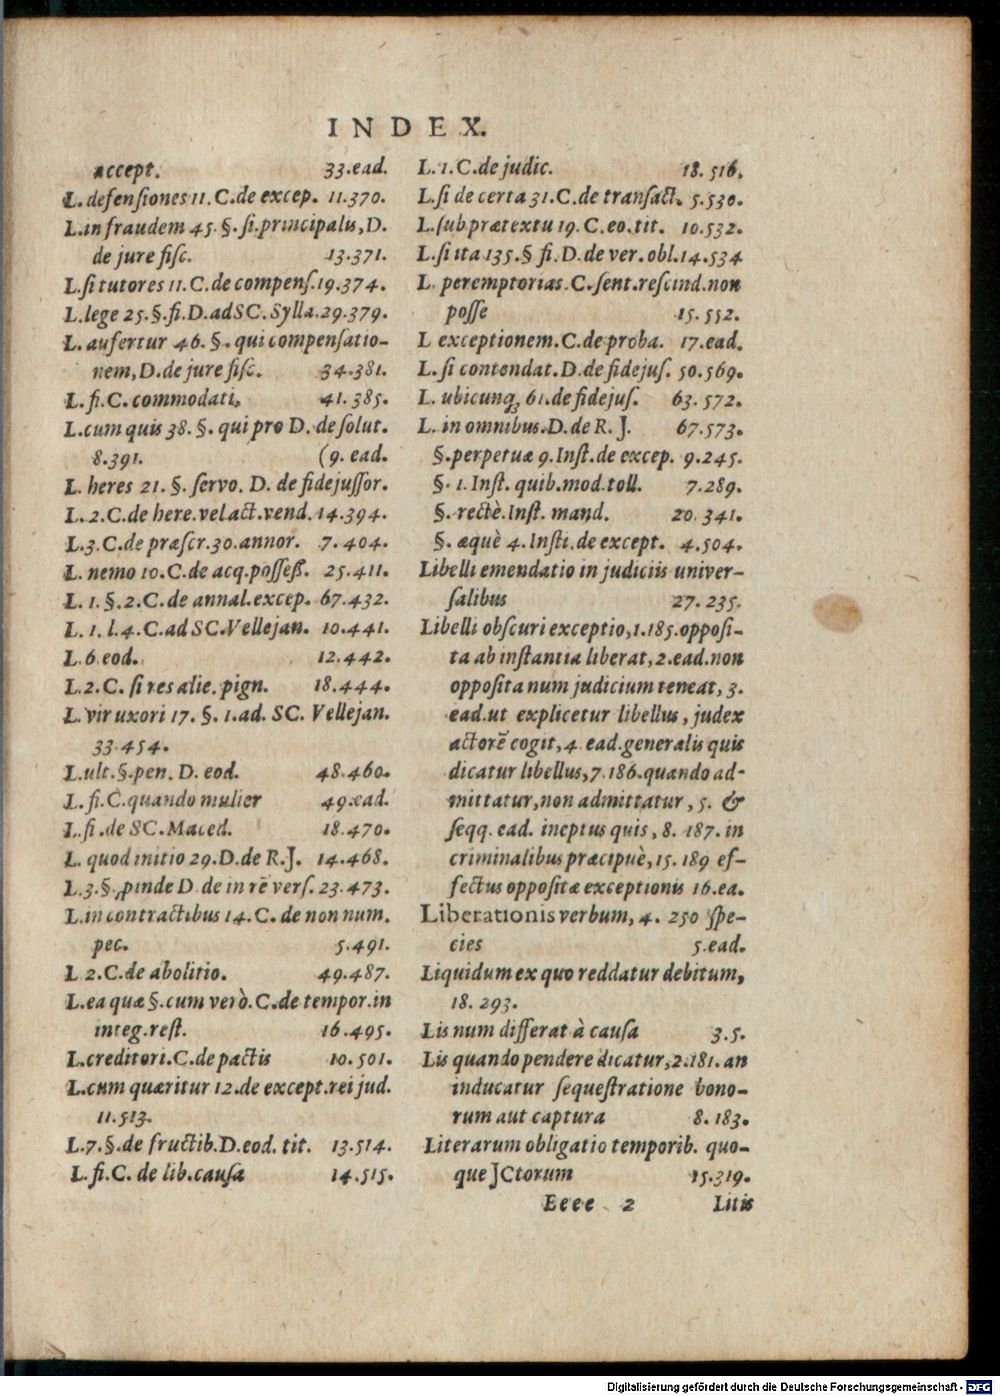 INDEX.
accept. 33.ead.
L. defensiones 11. C.de excep. 11.370.
L.in fraudem 45. §. si.principalis, D.
de jure fisc. 13.371.
L.si tutores 11. C.de compens.19.374.
L.lege 25.§.fi.D.adSC.Sylla.29.379.
L. aufertur 46. §. qui compensatio-
nem, D.de jure fisc. 34.381.
L. fi.C. commodati, 41.385.
L.cum quis 38. §. qui pro D. de solut.
8.391. (9. ead.
L. heres 21. §. servo. D. de fidejussor.
L.2.C.de here.vel act.vend.14.394.
L.3.C.de præscr.30.annor. 7.404.
L. nemo 10.C.de acq.possess. 25.411.
L. 1.§.2.C.de annal.excep. 67.432.
L. 1. l.4.C.ad SC.Vellejan. 10.441.
L.6 eod. 12.442.
L.2.C. si res alie. pign. 18.444.
L. vir uxori 17. §. 1.ad. SC. Vellejan.
33.454.
L.ult.§.pen. D. eod. 48.460.
L. fi.C.quando mulier 49.ead.
L.fi.de SC.Maced. 18.470.
L. quod initio 29.D.de R.J. 14.468.
L.3.§. pinde D. de in rē vers. 23.473.
L.in contractibus 14.C. de non num.
pec. 5.491.
L 2.C.de abolitio. 49.487.
L.ea quæ §.cum verò.C.de tempor.in
integ.rest. 16.495.
L.creditori.C.de pactis 10.501.
L.cum quæritur 12.de except.rei jud.
11.513.
L.7.§.de fructib.D.eod. tit. 13.514.
L.fi.C. de lib.causa 14.515.
L.1.C.de judic. 18.516.
L.si de certa 31.C.de transact. 5.530.
L.sub prætextu 19. C.eo.tit. 10.532.
L.si ita 135.§ fi.D.de ver.obl.14.534
L. peremptorias.C.sent.rescind.non
posse 15.552.
L exceptionem.C.de proba. 17.ead.
L.si contendat.D.de fidejus. 50.569.
L. ubicunq; 61.de fidejus. 63.572.
L. in omnibus.D.de R. J. 67.573.
§.perpetuæ 9.Inst.de excep. 9.245.
§. 1.Inst. quib.mod.toll. 7.289.
§. rectè.Inst. mand. 20.341.
§. æquè 4.Insti.de except. 4.504.
Libelli emendatio in judiciis univer-
salibus 27.235.
Libelli obscuri exceptio,1.185.opposi-
ta ab instantia liberat,2.ead.non
opposita num judicium teneat, 3.
ead.ut explicetur libellus, judex
actorē cogit,4 ead.generalis quis
dicatur libellus,7.186.quando ad-
mittatur,non admittatur, 5. &
seqq. ead. ineptus quis, 8. 187. in
criminalibus præcipuè, 15.189 ef-
fectus oppositæ exceptionis 16.ea.
Liberationis verbum, 4. 250 spe-
cies 5.ead.
Liquidum ex quo reddatur debitum,
18.293.
Lis num differat à causa 3.5.
Lis quando pendere dicatur,2.181.an
inducatur sequestratione bono-
rum aut captura 8.183.
Literarum obligatio temporib. quo-
que JCtorum 15.319.
Eeee 2 Litis
Digitalisierung gefördert durch die Deutsche Forschungsgemeinschaft - DFG